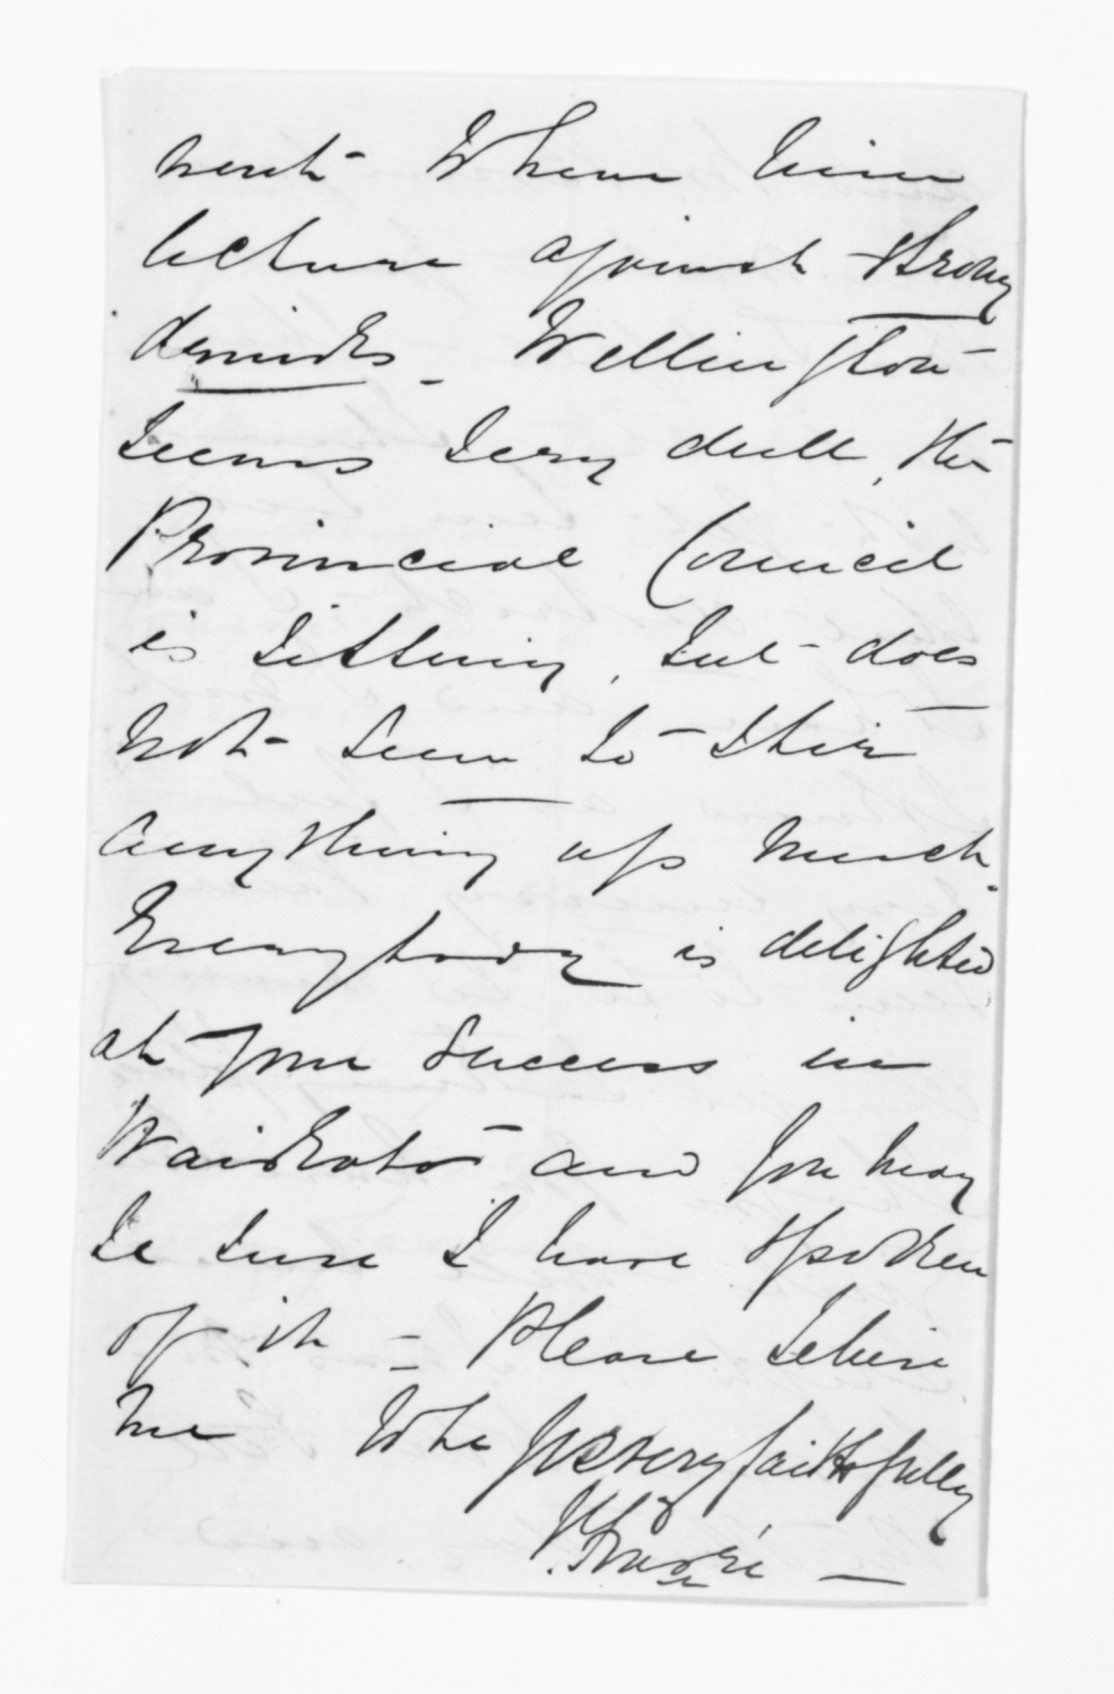 next- to hear him
lecture against strong
drinks - Wellington
seems very dull, the
Provincial Council
is sitting, but does
not seem to stir
anything up much.
Everybody is delighted
at your success in
Waikato and you may
be sure I have spoken
of it - Please believe
me to be yrs very faithfully